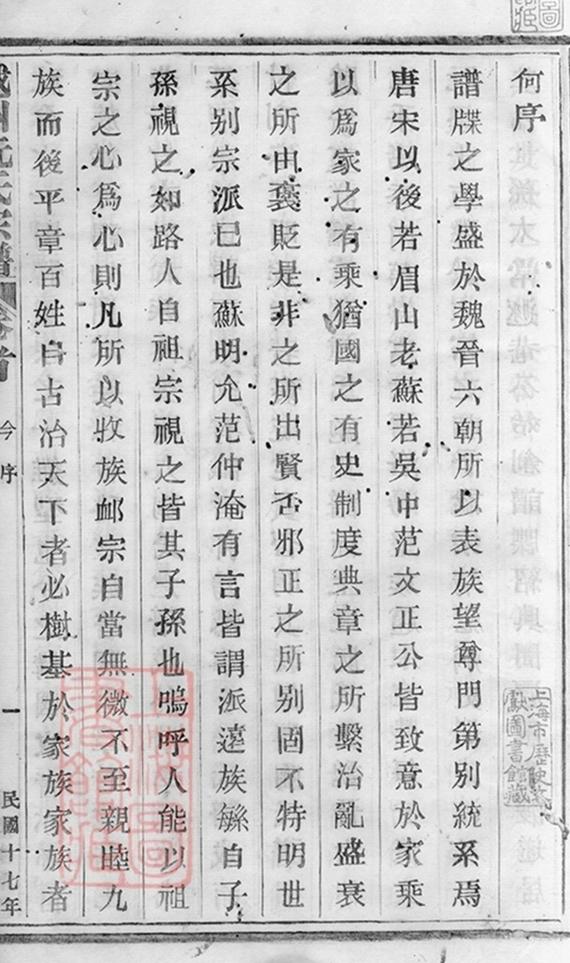 何序
譜牒之學盛於魏晉六朝所以表族望尊門第别統系焉
唐宋以後若眉山老蘇若吳中范文正公皆致意於家乘
以爲家之有乘猶國之有史制度典章之所繫治亂盛衰
之所由褒貶是非之所出賢否邪正之所别固不特明世
系别宗派已也蘇明允范仲淹有言皆謂派遠族繇自子
孫視之如路人自祖宗視之皆其子孫也嗚呼人能以祖
宗之心爲心則凡所以收族卹宗自當無微不至親睦九
族而後平章百姓自古治天下者必樹基於家族家族者
氏宗譜 卷首 今序 一 民國十七年
上海市歷史文獻圖書館藏